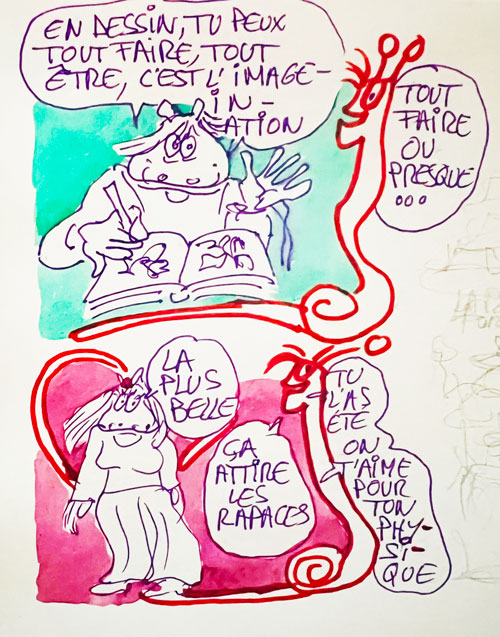 EN DESSIN, TU PEUX
TOUT FAIRE, TOUT
ÊTRE, C'EST L'IMAGE-
IN-
ATION
TOUT
FAIRE
OU
PRESQUE
...
LA
PLUS
BELLE
TU
L'AS
ÉTÉ
ON
T'AIME
POUR
TON
PHY-
SI-
QUE
ÇA
ATTIRE
LES
RAPACES